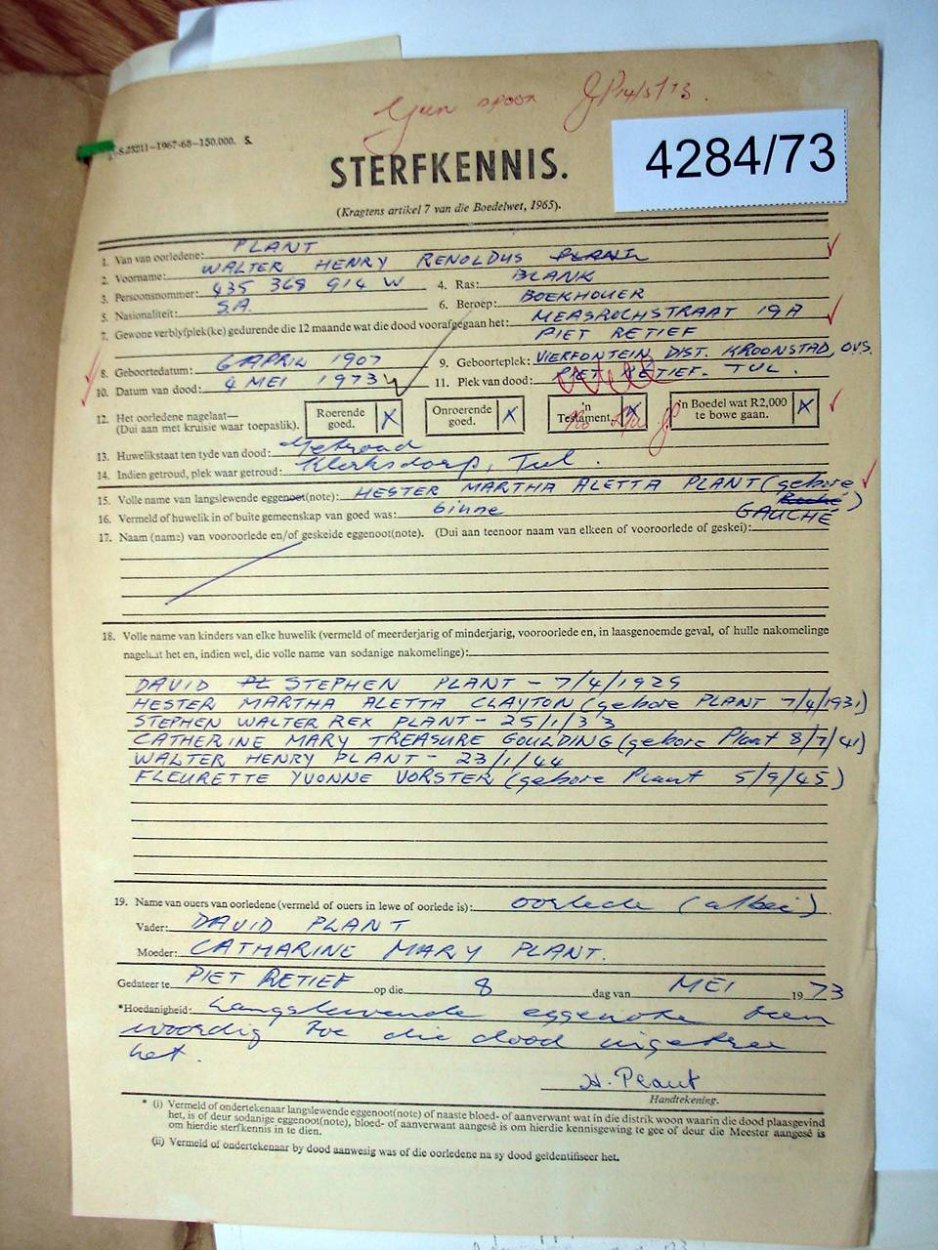 Geen spoor JP 14/5/73.
S.23211-1967-68-150,000. S.
4284/73
STERFKENNIS.
(Kragtens artikel 7 van die Boedelwet, 1965).
1. Van van oorledene: PLANT
2. Voorname: WALTER HENRY RENOLDUS PLANT
3. Persoonsnommer: 435 368 914 W 4. Ras: BLANK
5. Nasionaliteit: S.A. 6. Beroep: BOEKHOUER
7. Gewone verblyfplek(ke) gedurende die 12 maande wat die dood voorafgegaan het: MEASROCHSTRAAT 19A
PIET RETIEF
8. Geboortedatum: 6 APRIL 1907 9. Geboorteplek: VIERFONTEIN, DIST. KROONSTAD, OVS.
10. Datum van dood: 4 MEI 1973 11. Plek van dood: PIET RETIEF. TVL.
Will
12. Het oorledene nagelaat— (Dui aan met kruisie waar toepaslik). Roerende goed. X Onroerende goed. X 'n Testament. X 'n Boedel wat R2,000 te bowe gaan. X
13. Huwelikstaat ten tyde van dood: Getroud
14. Indien getroud, plek waar getroud: Klerksdorp, Tvl.
15. Volle name van langslewende eggenoot(note): HESTER MARTHA ALETTA PLANT (gebore
16. Vermeld of huwelik in of buite gemeenskap van goed was: binne GAUCHÉ)
17. Naam (name) van vooroorlede en/of geskeide eggenoot(note). (Dui aan teenoor naam van elkeen of vooroorlede of geskei):
18. Volle name van kinders van elke huwelik (vermeld of meerderjarig of minderjarig, vooroorlede en, in laasgenoemde geval, of hulle nakomelinge
nagelaat het en, indien wel, die volle name van sodanige nakomelinge):
DAVID PL STEPHEN PLANT - 7/4/1929
HESTER MARTHA ALETTA CLAYTON (gebore PLANT 7/4/1931)
STEPHEN WALTER REX PLANT - 25/1/33
CATHERINE MARY TREASURE GOULDING (gebore Plant 8/7/41)
WALTER HENRY PLANT - 23/1/44
FLEURETTE YVONNE VORSTER (gebore Plant 5/9/45)
19. Name van ouers van oorledene (vermeld of ouers in lewe of oorlede is): oorlede (albei).
Vader: DAVID PLANT
Moeder: CATHARINE MARY PLANT.
Gedateer te PIET RETIEF op die 8 dag van MEI 1973
*Hoedanigheid: Langslewende eggenote teen
woordig toe die dood ingetree
het.
H. Plant
Handtekening.
* (i) Vermeld of ondertekenaar langslewende eggenoot(note) of naaste bloed- of aanverwant wat in die distrik woon waarin die dood plaasgevind
het, is of deur sodanige eggenoot(note), bloed- of aanverwant aangesê is om hierdie kennisgewing te gee of deur die Meester aangesê is
om hierdie sterfkennis in te dien.
(ii) Vermeld of ondertekenaar by dood aanwesig was of die oorledene na sy dood geïdentifiseer het.